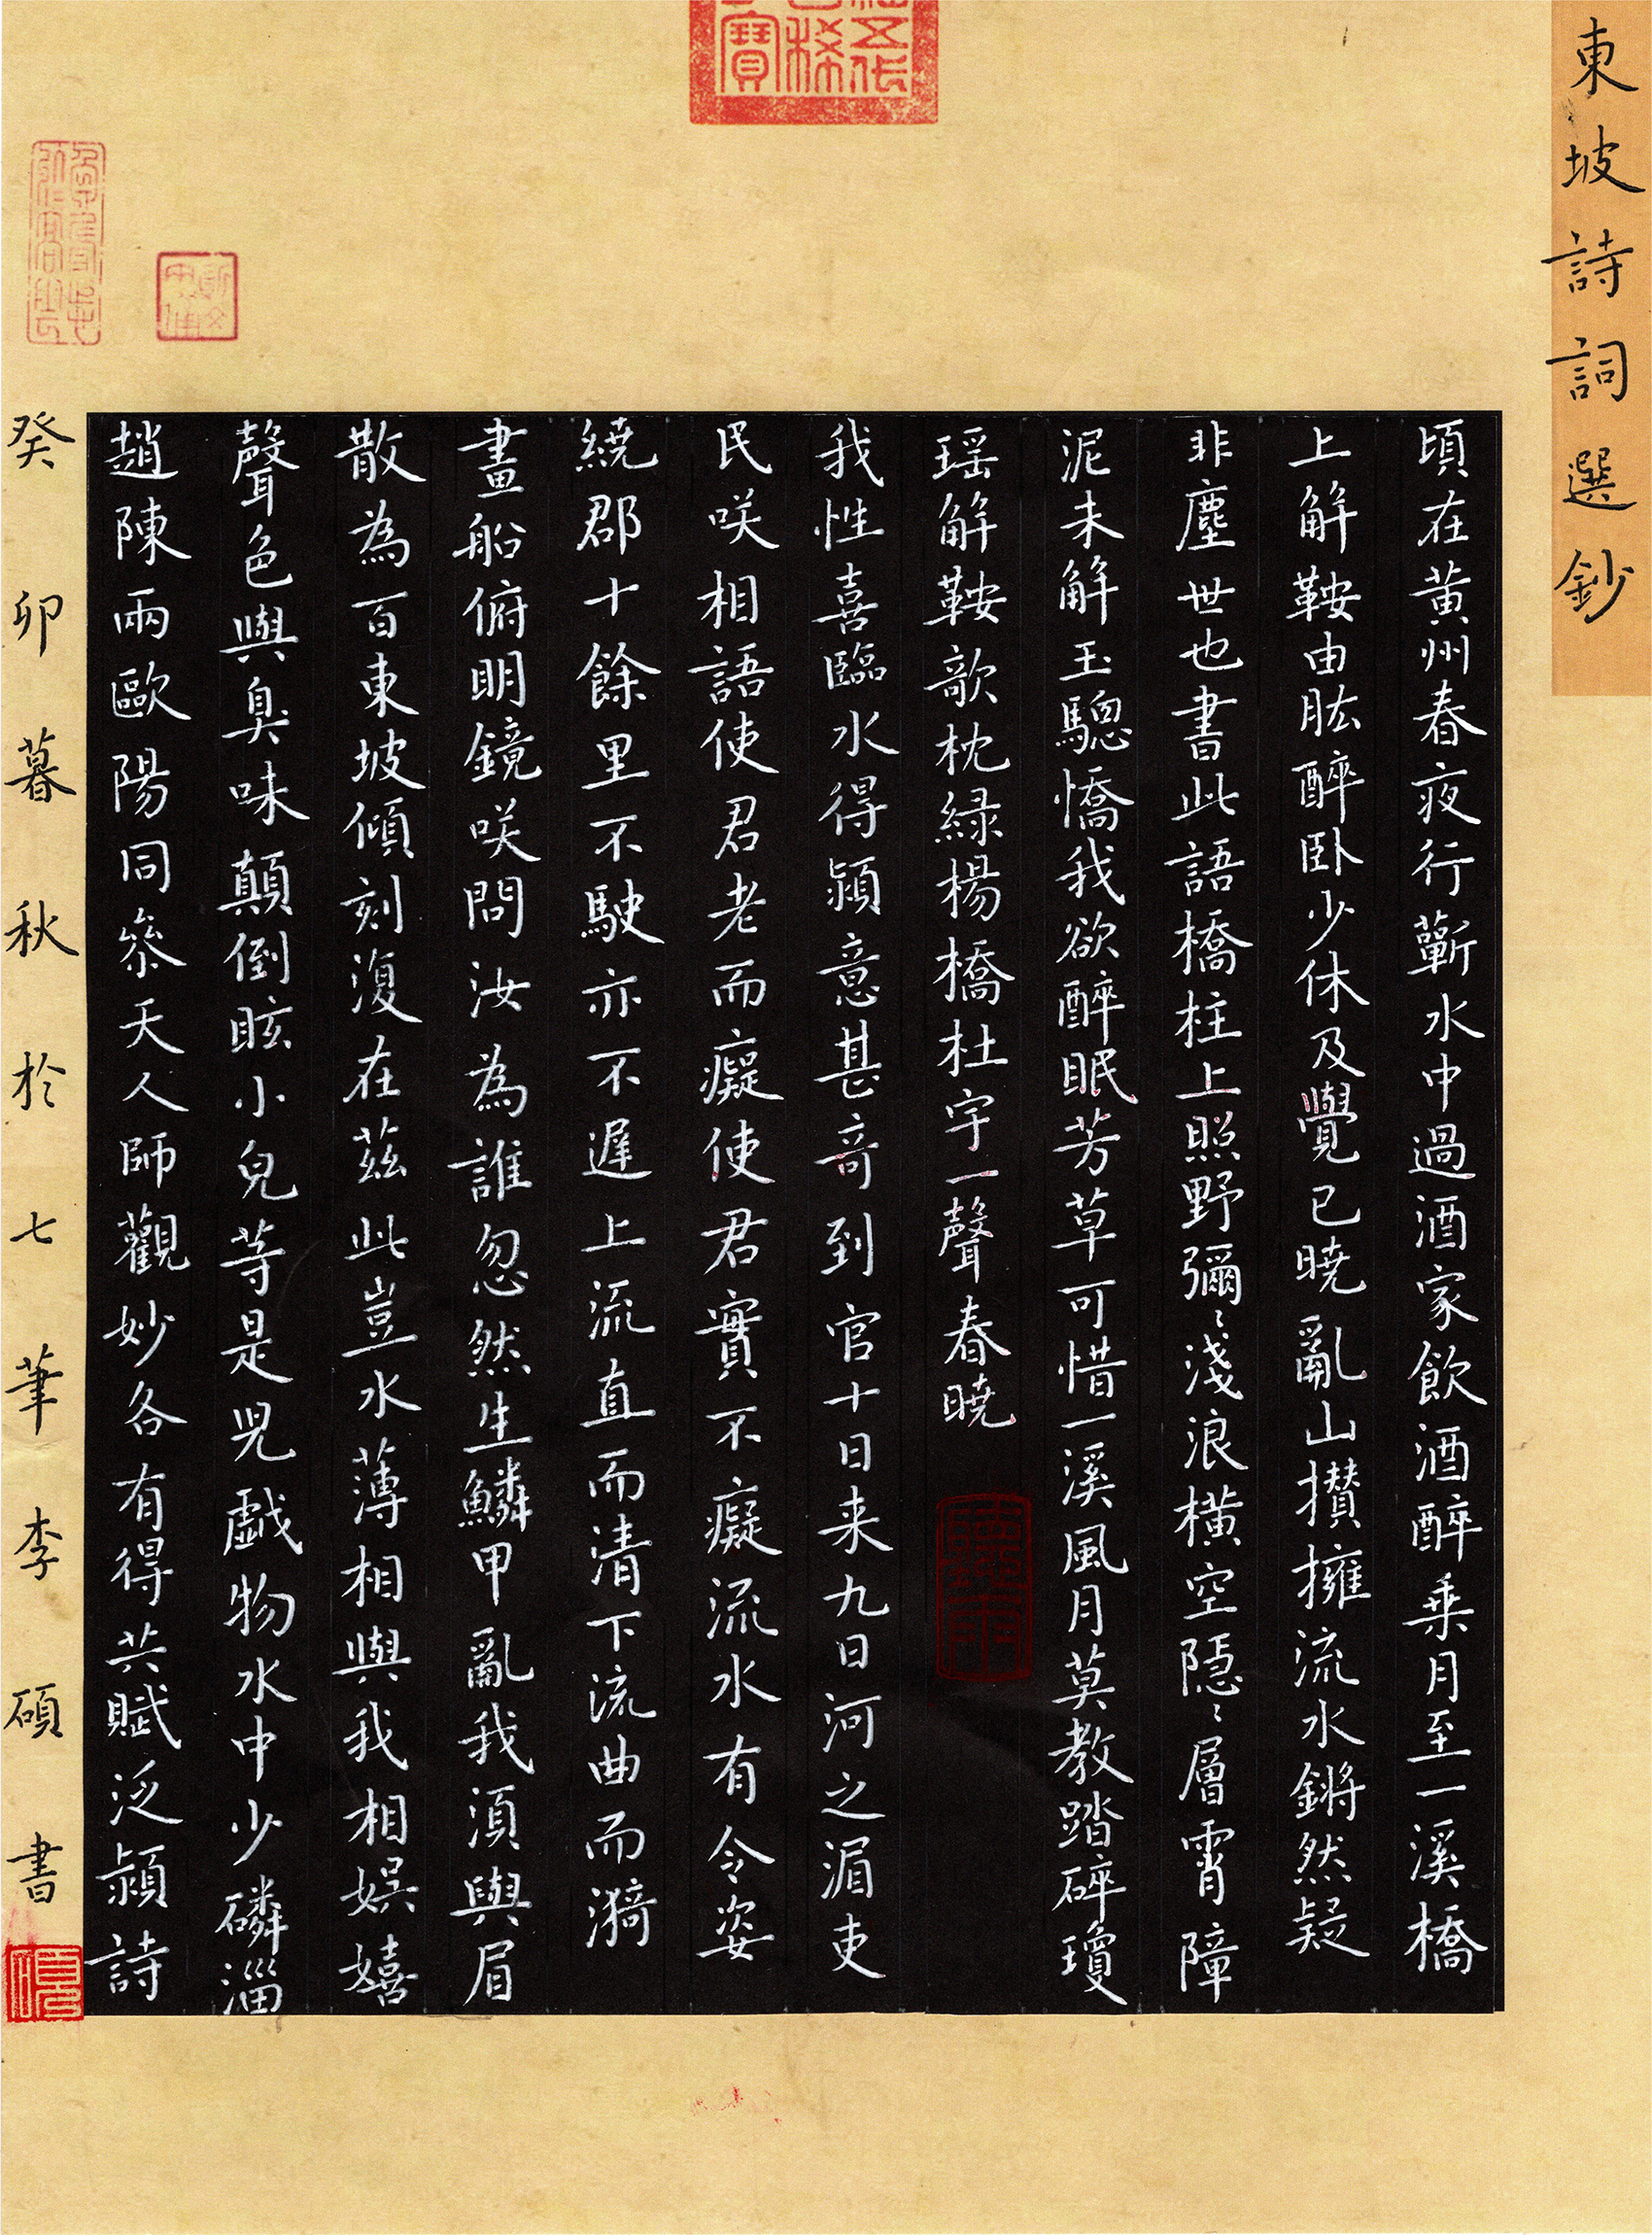 東坡詩詞選鈔
頃在黃州春夜行蘄水中過酒家飲酒醉乘月至一溪橋
上解鞍曲肱醉卧少休及覺已曉亂山攢擁流水鏘然疑
非塵世也書此語橋柱上照野彌〻淺浪橫空隱〻層霄障
泥未解玉驄憍我欲醉眠芳草可惜一溪風月莫教踏碎瓊
瑶解鞍欹枕緑楊橋杜宇一聲春曉
我性喜臨水得潁意甚奇到官十日来九日河之湄吏
民咲相語使君老而癡使君實不癡流水有令姿
繞郡十餘里不駛亦不遲上流直而清下流曲而漪
畫船俯明鏡咲問汝為誰忽然生鱗甲亂我須與眉
散為百東坡傾刻復在茲此豈水薄相與我相娱嬉
聲色與臭味顛倒眩小兒等是兒戲物水中少磷淄
趙陳兩歐陽同叅天人師觀妙各有得共賦泛潁詩
癸卯暮秋於七筆李碩書